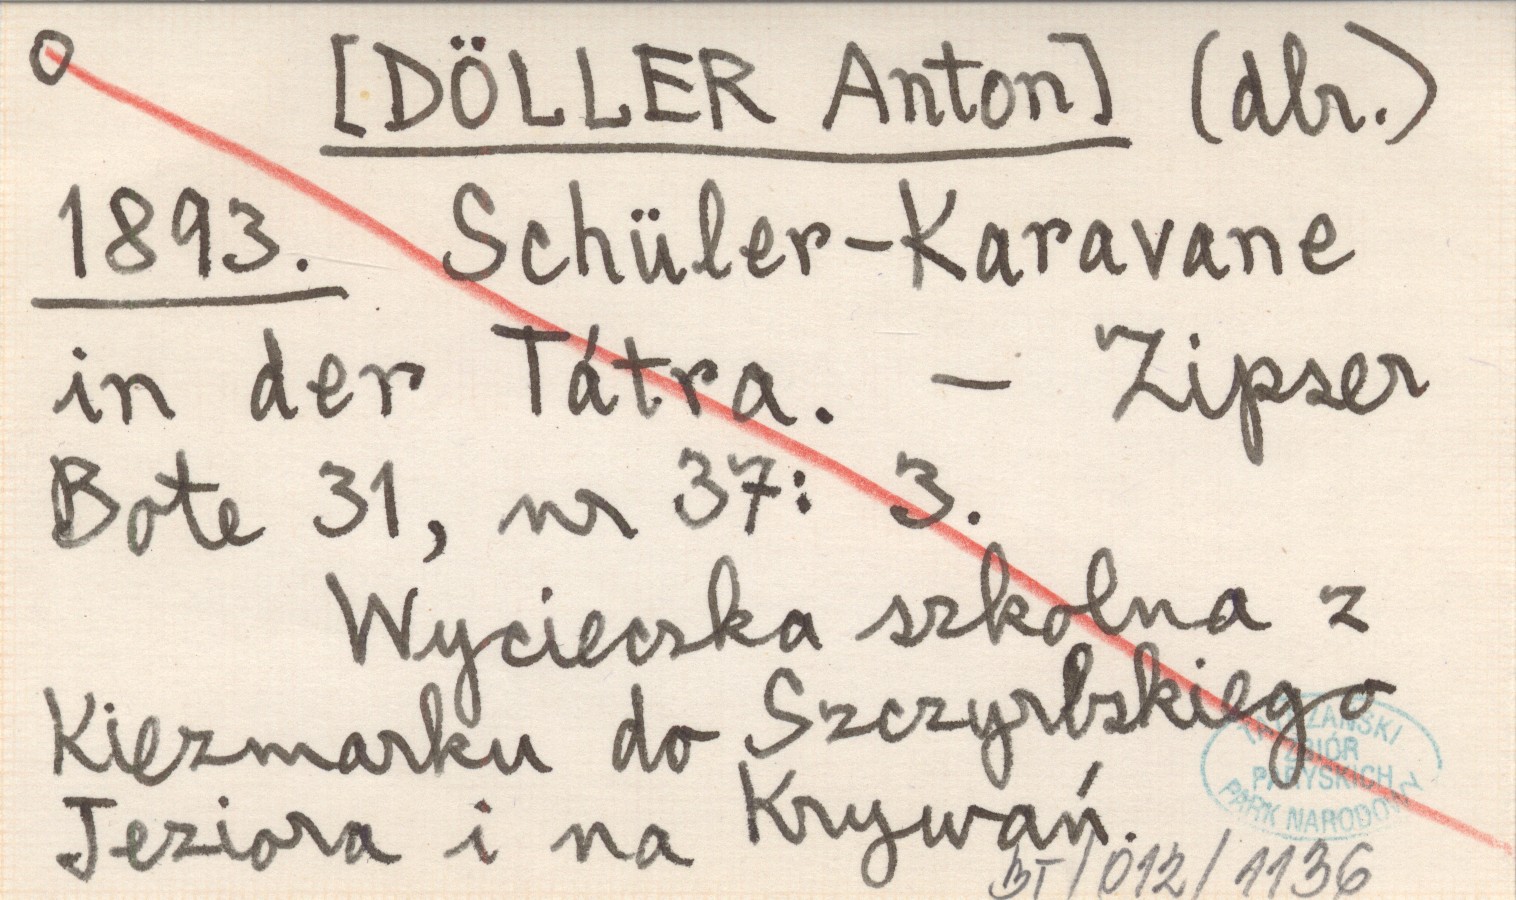 [DÖLLER Anton] (dbr.)
1893. Schüler-Karavane
in der Tátra. — Zipser
Bote 31, nr 37: 3.
Wycieczka szkolna z
Kiezmarku do Szczyrbskiego
Jeziora i na Krywań.
TATRZAŃSKI
ZBIÓR
PARYSKICH
PARK NARODOWY
BT/012/1136